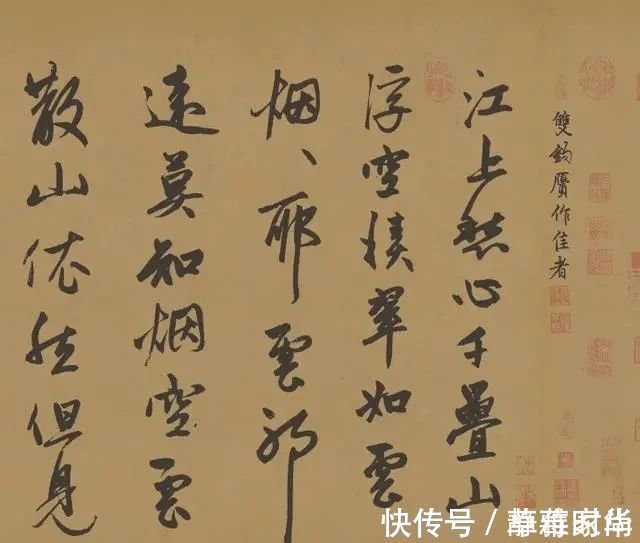 雙鈎贋作佳者
江上愁心千疊山
浮空積翠如雲
烟、耶雲耶
遠莫知烟空雲
散山依然但見
快传号 /